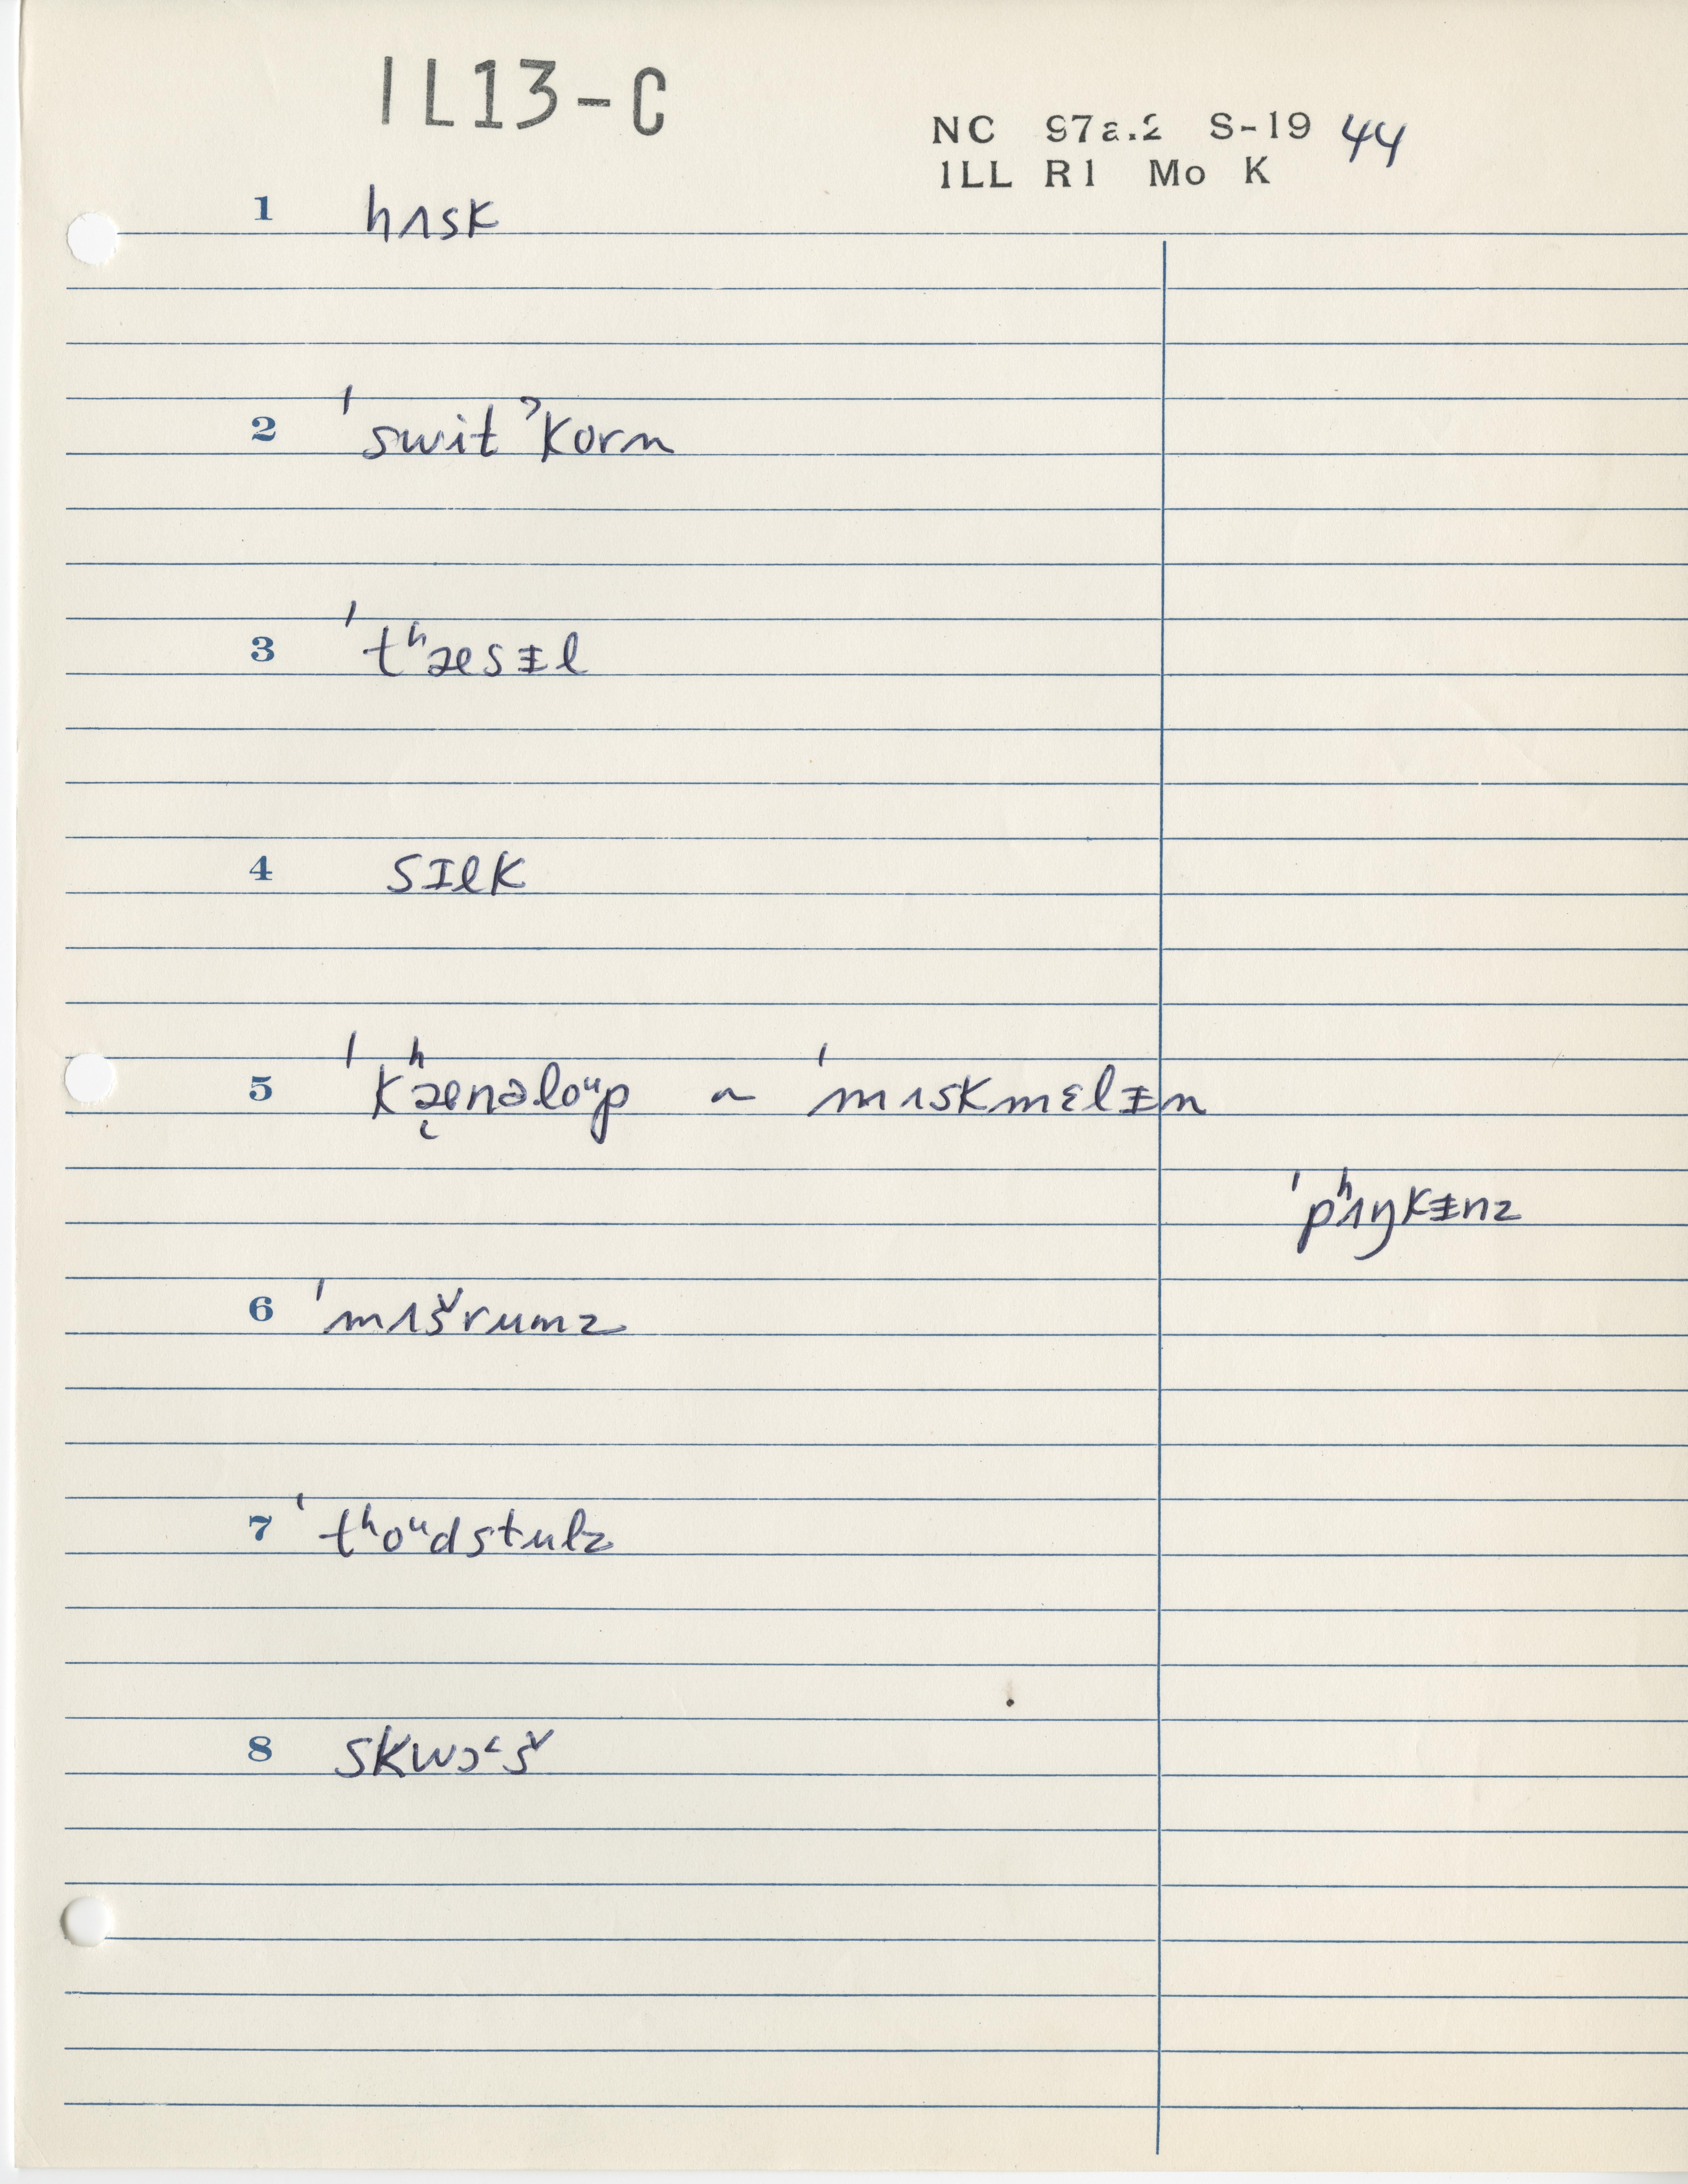 IL13-C
NC 97a.2 S-19 44
ILL R1 Mo K
1 hʌsk
2 ˈswit ˀkorn
3 ˈtʰæsᵻl
4 sɪlk
5 ˈkʰæ̨nəloᵘp ~ ˈmʌskmɛlᵻn
ˈpʰʌŋkᵻnz
6 ˈmʌšrumz
7 ˈtʰoᵘdstulz
8 skwɔ˂š